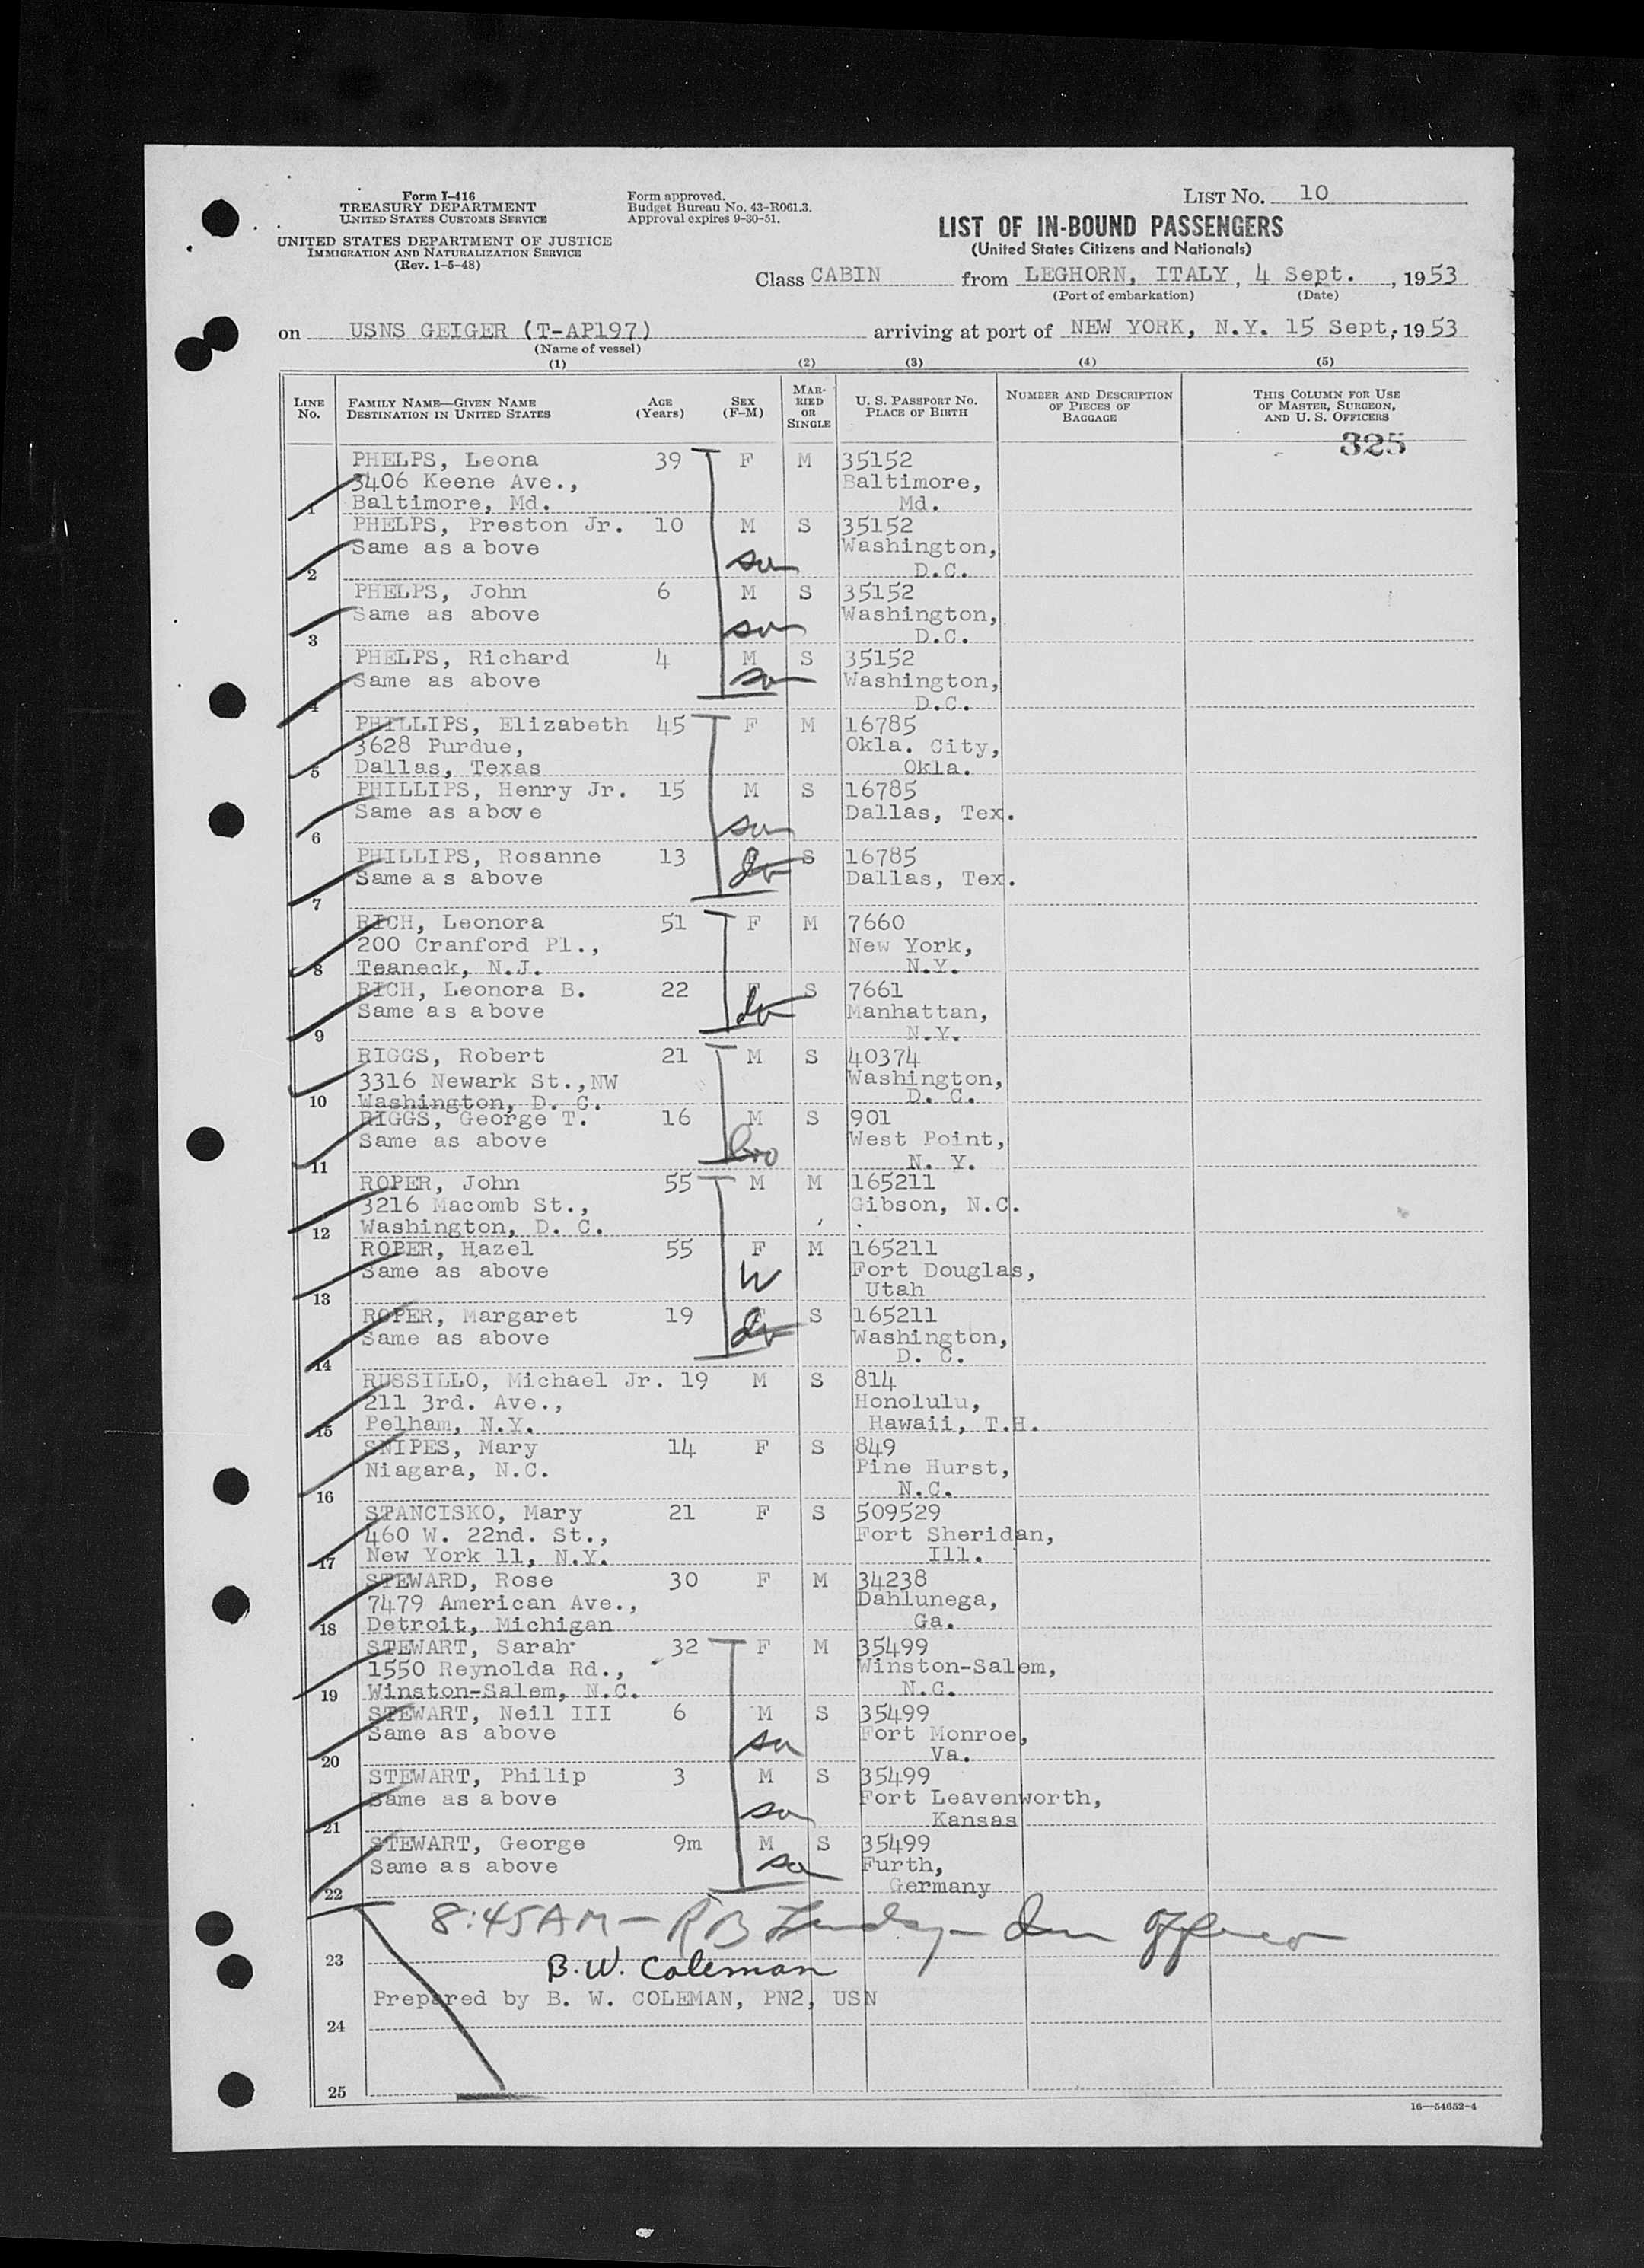 Form I-416
TREASURY DEPARTMENT
UNITED STATES CUSTOMS SERVICE
UNITED STATES DEPARTMENT OF JUSTICE
IMMIGRATION AND NATURALIZATION SERVICE
(Rev. 1-5-48)
Form approved.
Budget Bureau No. 43-R061.3.
Approval expires 9-30-51.
LIST NO. 10
LIST OF IN-BOUND PASSENGERS
(United States Citizens and Nationals)
Class CABIN from LEGHORN, ITALY, 4 Sept., 1953
(Port of embarkation) (Date)
on USNS GEIGER (T-AP197) arriving at port of NEW YORK, N.Y. 15 Sept, 1953
(Name of vessel)
(1) (2) (3) (4) (5)
LINE NO. FAMILY NAME—GIVEN NAME DESTINATION IN UNITED STATES AGE (Years) SEX (F-M) MARRIED OR SINGLE U. S. PASSPORT NO. PLACE OF BIRTH NUMBER AND DESCRIPTION OF PIECES OF BAGGAGE THIS COLUMN FOR USE OF MASTER, SURGEON, AND U. S. OFFICERS
325
PHELPS, Leona 39 F M 35152
3406 Keene Ave., Baltimore,
1 Baltimore, Md. Md.
PHELPS, Preston Jr. 10 M S 35152
Same as above Washington,
2 son D.C.
PHELPS, John 6 M S 35152
Same as above Washington,
3 son D.C.
PHELPS, Richard 4 M S 35152
Same as above son Washington,
4 D.C.
PHILLIPS, Elizabeth 45 F M 16785
3628 Purdue, Okla. City,
5 Dallas, Texas Okla.
PHILLIPS, Henry Jr. 15 M S 16785
Same as above Dallas, Tex.
6 son
PHILLIPS, Rosanne 13 S 16785
Same as above Dallas, Tex.
7
RICH, Leonora 51 F M 7660
200 Cranford Pl., New York,
8 Teaneck, N.J. N.Y.
RICH, Leonora B. 22 F S 7661
Same as above Manhattan,
9 N.Y.
RIGGS, Robert 21 M S 40374
3316 Newark St.,NW Washington,
10 Washington, D. C. D. C.
RIGGS, George T. 16 M S 901
Same as above bro West Point,
11 N. Y.
ROPER, John 55 M M 165211
3216 Macomb St., Gibson, N.C.
12 Washington, D. C.
ROPER, Hazel 55 F M 165211
Same as above W Fort Douglas,
13 Utah
ROPER, Margaret 19 S 165211
Same as above Washington,
14 D. C.
RUSSILLO, Michael Jr. 19 M S 814
211 3rd. Ave., Honolulu,
15 Pelham, N.Y. Hawaii, T.H.
SNIPES, Mary 14 F S 849
Niagara, N.C. Pine Hurst,
16 N.C.
STANCISKO, Mary 21 F S 509529
460 W. 22nd. St., Fort Sheridan,
17 New York 11, N.Y. Ill.
STEWARD, Rose 30 F M 34238
7479 American Ave., Dahlunega,
18 Detroit, Michigan Ga.
STEWART, Sarah 32 F M 35499
1550 Reynolda Rd., Winston-Salem,
19 Winston-Salem, N.C. N.C.
STEWART, Neil III 6 M S 35499
Same as above Fort Monroe,
20 son Va.
STEWART, Philip 3 M S 35499
Same as above son Fort Leavenworth,
21 Kansas
STEWART, George 9m M S 35499
Same as above son Furth,
22 Germany
8:45AM — R B
23 B.W. Coleman
Prepared by B. W. COLEMAN, PN2, USN
24
25
16—54652-4